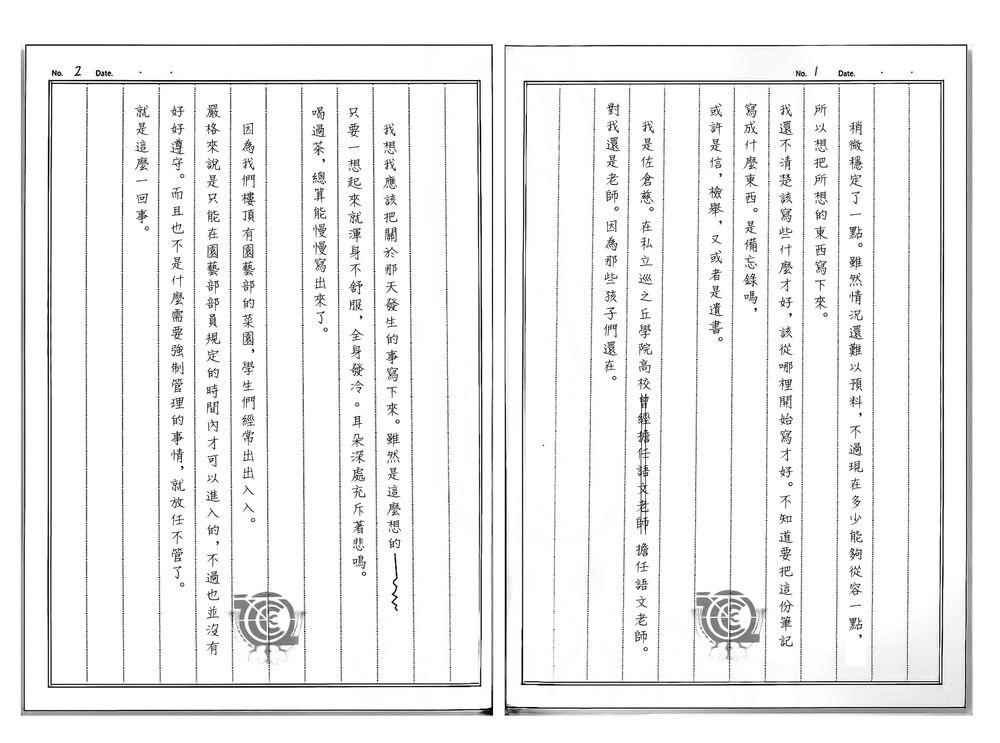 No. 1 Date. . .
稍微穩定了一點。雖然情況還難以預料，不過現在多少能夠從容一點，
所以想把所想的東西寫下來。
我還不清楚該寫些什麼才好，該從哪裡開始寫才好。不知道要把這份筆記
寫成什麼東西。是備忘錄嗎，
或許是信，檢舉，又或者是遺書。
我是佐倉慈。在私立巡之丘學院高校曾經擔任語文老師 擔任語文老師。
對我還是老師。因為那些孩子們還在。
No. 2 Date. . .
我想我應該把關於那天發生的事寫下來。雖然是這麼想的
只要一想起來就渾身不舒服，全身發冷。耳朵深處充斥著悲鳴。
喝過茶，總算能慢慢寫出來了。
因為我們樓頂有園藝部的菜園，學生們經常出出入入。
嚴格來說是只能在園藝部部員規定的時間內才可以進入的，不過也並沒有
好好遵守。而且也不是什麼需要強制管理的事情，就放任不管了。
就是這麼一回事。